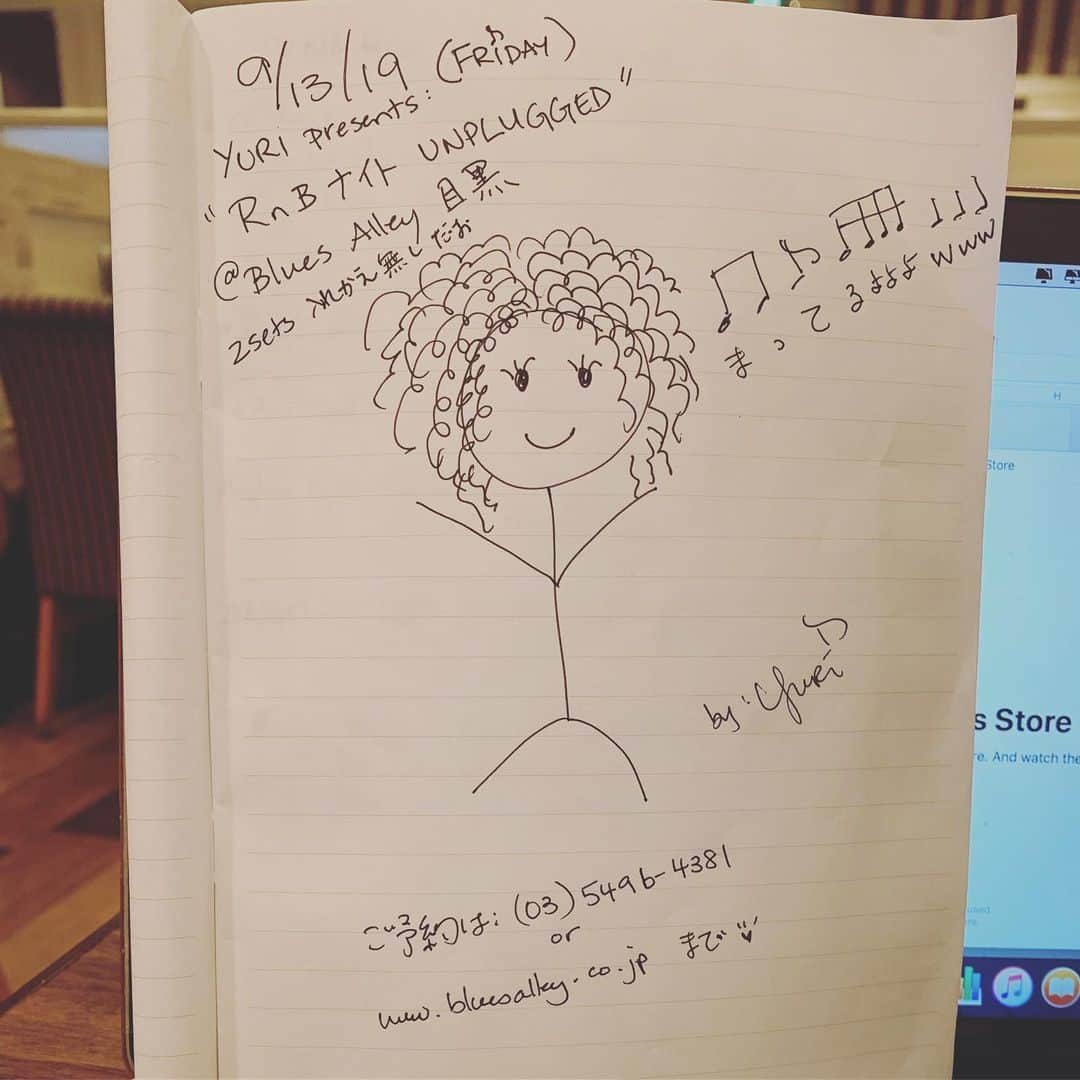 9/13/19 (FRiDAY)
YURi Presents:
"RnB ナイト UNPLUGGED"
@Blues Alley 目黒
2sets 入れかえ無しだお
まってるよよよ www
by: Yuri
ご予約は: (03) 5496-4381
or
www.bluesalley.co.jp まで
H
Store
s Store
re. And watch the
used
re.